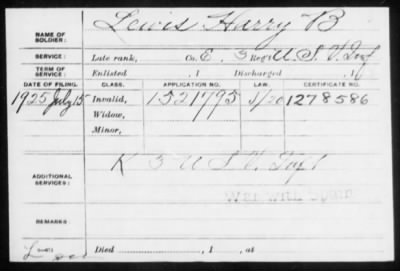 NAME OF SOLDIER: Lewis Harry B
SERVICE: Late rank, Co. E. 3 Reg't U. S. V. Inf
TERM OF SERVICE: Enlisted , 1 Discharged , 1
DATE OF FILING. CLASS. APPLICATION NO. LAW. CERTIFICATE NO.
1925 July 15 Invalid, 1521795 1278586
Widow,
Minor,
ADDITIONAL SERVICES: K 3 U S V. Inf
REMARKS:
Died , 1 , at